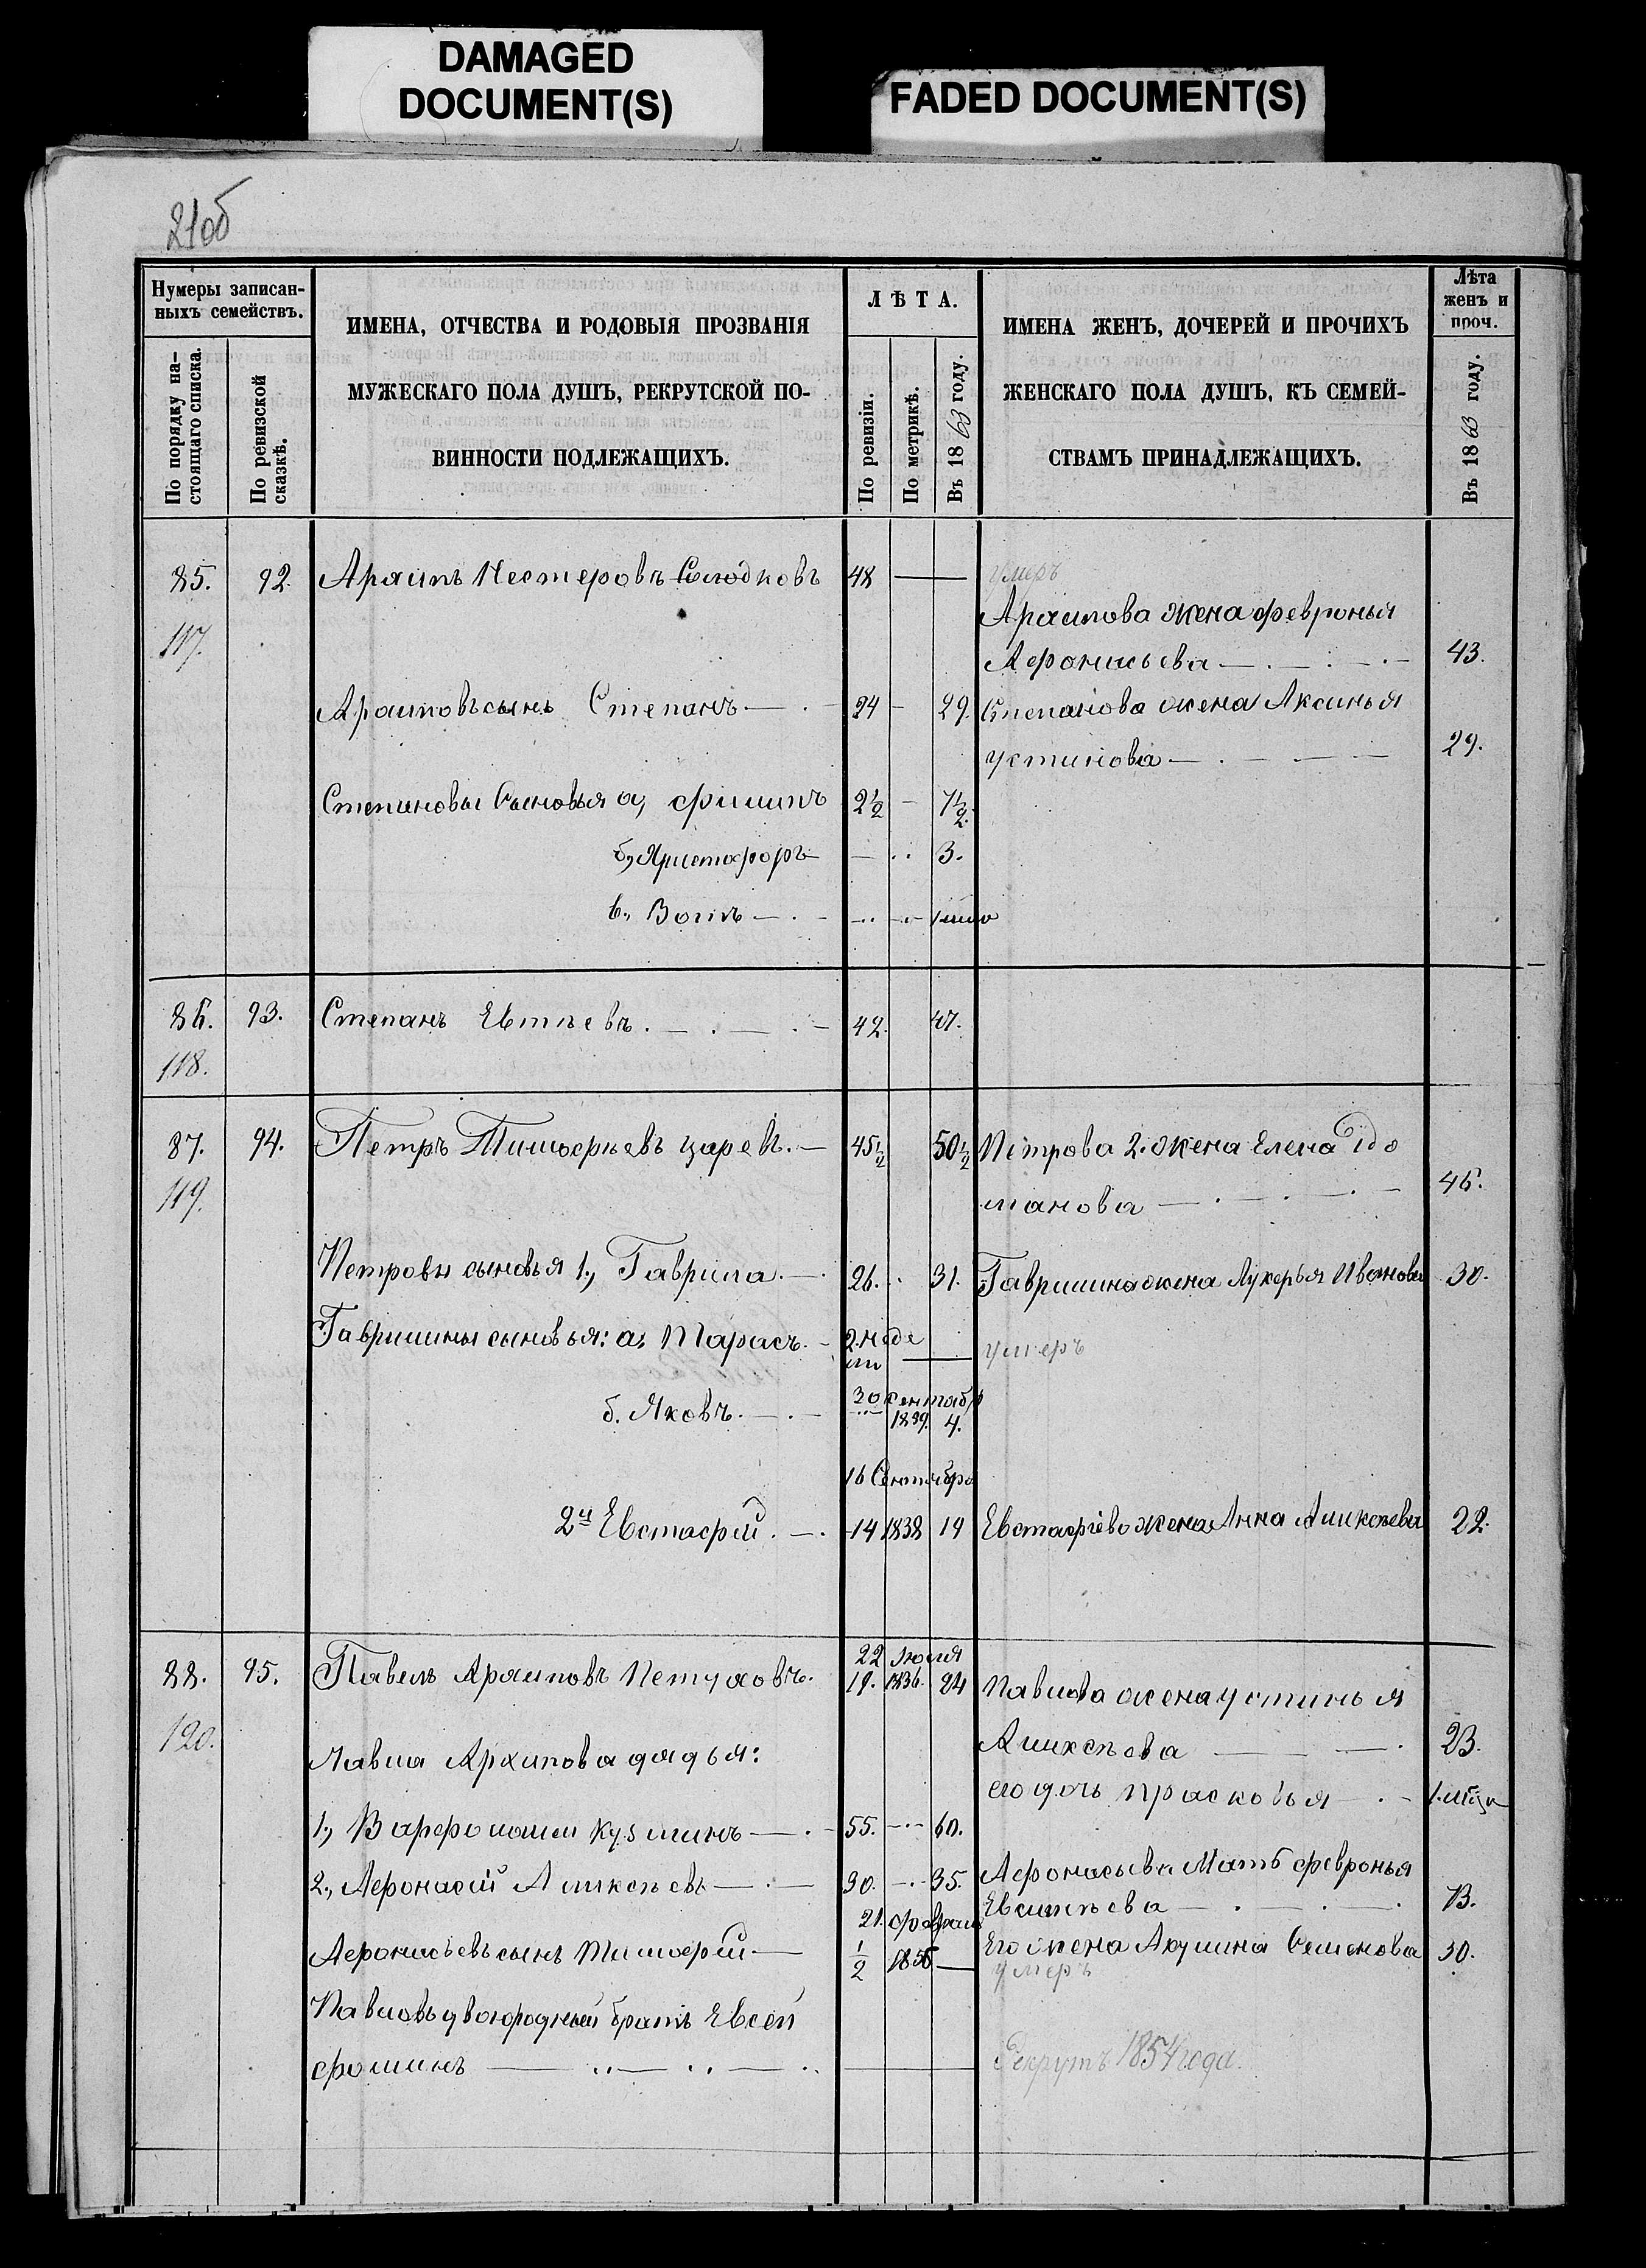 DAMAGED
DOCUMENT(S)
FADED DOCUMENT(S)
21об
Нумеры записан-
ныхъ семействъ.
По порядку на-
стоящаго списка.
По ревизской
сказкѣ.
ИМЕНА, ОТЧЕСТВА И РОДОВЫЯ ПРОЗВАНІЯ
МУЖЕСКАГО ПОЛА ДУШЪ, РЕКРУТСКОЙ ПО-
ВИННОСТИ ПОДЛЕЖАЩИХЪ.
ЛѢТА.
По ревизіи.
По метрикѣ.
Въ 1863 году.
ИМЕНА ЖЕНЪ, ДОЧЕРЕЙ И ПРОЧИХЪ
ЖЕНСКАГО ПОЛА ДУШЪ, КЪ СЕМЕЙ-
СТВАМЪ ПРИНАДЛЕЖАЩИХЪ.
Лѣта
женъ и
проч.
Въ 1863 году.
85. 92. Архипъ Нестеровъ Солодковъ 48 — умеръ
117. Архипова жена Февронья
Афонасьева — 43.
Архиповъ сынъ Степанъ — 24 — 29. Степанова жена Аксинья
Устинова — 29.
Степановы сыновья а, Филипъ 2½ — 7½.
б, Христофоръ — 3.
в,
86. 93. Степанъ Евтѣевъ. — 42. 47.
118.
87. 94. Петръ Тимофѣевъ Царевъ. — 45½ 50½ Петрова 2. жена Елена
манова — 46.
119.
Петровы сыновья 1., Гаврила. — 26. 31. Гаврилина жена Лукерья Иванова 30.
Гаврилины сыновья: а, Тарасъ. — 2. неде
ли — умеръ
б. Яковъ. — 30 сентябр
1839. 4.
16 Сентября
2й Евстафій. — 14 1838 19 Евстафіева жена Анна Аликсѣева 22.
88. 95. Павелъ Архиповъ Петуховъ. 22 июля
19. 1836. 24 Павлова жена Устинья
120. Аликсѣева — 23.
Павла Архипова дядья: его дочь Прасковья —
1., Варфоломей Кузминъ — 55. — 60.
2., Афонасій Аликсѣевъ — 30. — 35. Афонасьева мать Февронья
Евситѣева — 73.
21. февраля
Афонасьевъ сынъ Тимофей — ½ — Его жена Акулина Семенова 30.
умеръ
Павловъ двоюродный братъ Евсей
Фоминъ — Рекрутъ 1854 года.